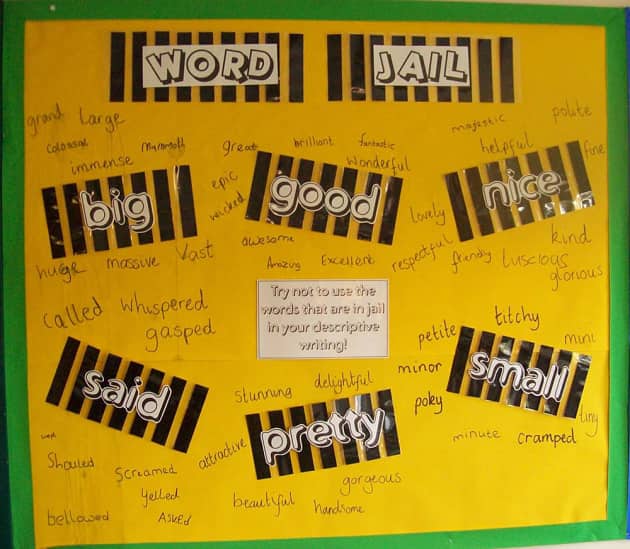 WORD JAIL
grand Large
Colossal Mammoth
immense
big
huge massive Vast
great brilliant fantastic
wonderful
epic
wicked
good
awesome
Amazing Excellent
majestic polite
helpful fine
nice
lovely
respectful friendly Luscious kind
glorious
Try not to use the
words that are in jail
in your descriptive
writing!
called whispered
gasped
said
Shouted Screamed
Yelled
bellowed Asked
stunning delightful
attractive
pretty
gorgeous
beautiful handsome
titchy
petite mini
minor
poky
small
tiny
minute cramped